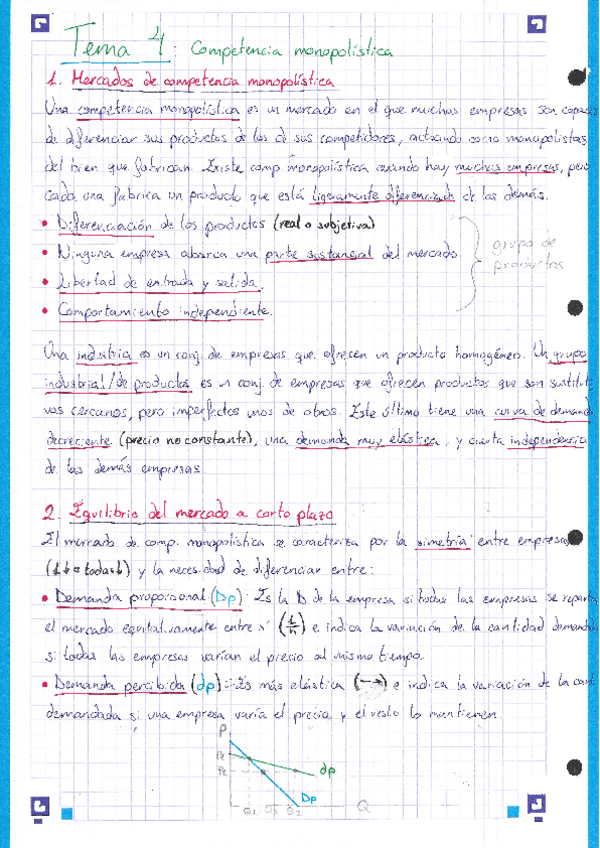 Tema 4: Competencia monopolística
1. Mercados de competencia monopolística
Una competencia monopolística es un mercado en el que muchas empresas son capaces
de diferenciar sus productos de los d sus competidores, actuando como monopolistas
del bien que fabrican. Existe comp. monopolística cuando hay muchas empresas, pero
cada una fabrica un producto que está ligeramente diferenciado de las demás.
• Diferenciación de los productos (real o subjetiva)
• Ninguna empresa abarca una parte sustancial del mercado.
• Libertad de entrada y salida.
• Comportamiento independiente.
grupo de
productos
Una industria es un conj. de empresas que ofrecen un producto homogéneo. Un grupo
industrial/de productos es un conj. de empresas que ofrecen productos que son sustituti
vos cercanos, pero imperfectos unos de otros. Este último tiene una curva de demanda
decreciente (precio no constante), una demanda muy elástica, y cierta independencia
de las demás empresas.
2. Equilibrio del mercado a corto plazo
El mercado de comp. monopolística se caracteriza por la simetría entre empresas
y la necesidad de diferenciar entre:
• Demanda proporcional (Dp): Es la D de la empresa si todas las empresas se reparten
el mercado equitativamente entre sí (1/n) e indica la variación de la cantidad demandada
si todas las empresas varían el precio al mismo tiempo.
• Demanda percibida (dp): Es más elástica (→) e indica la variación de la cant.
demandada si una empresa varía el precio y el resto lo mantienen.
P
dp
Dp
Q